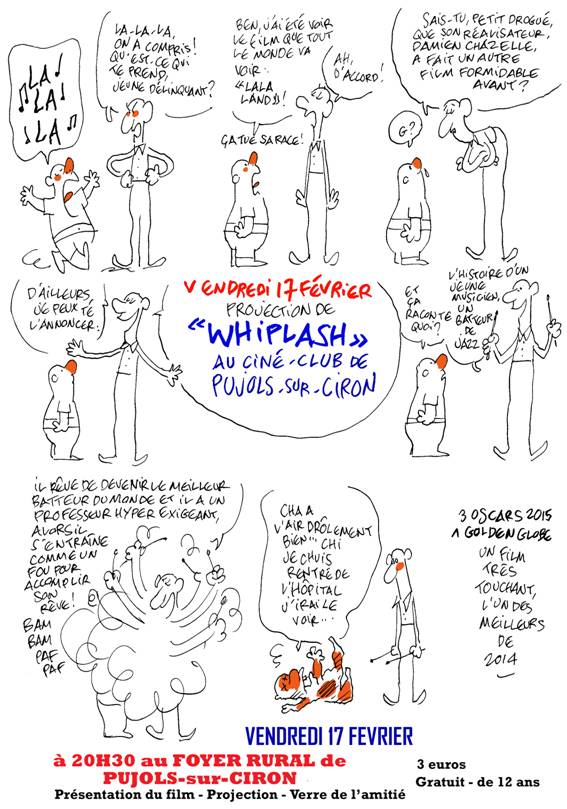 ♪LA♪
♫LA♩
♩LA♫
LA-LA-LA,
ON A COMPRIS!
QU'EST-CE QUI
TE PREND,
JEUNE DÉLINQUANT?
BEN, J'AI ÉTÉ VOIR
LE FILM QUE TOUT
LE MONDE VA
VOIR:
"LALA
LAND"!
ÇA TUE SA RACE!
AH,
D'ACCORD!
SAIS-TU, PETIT DROGUÉ,
QUE SON RÉALISATEUR,
DAMIEN CHAZELLE,
A FAIT UN AUTRE
FILM FORMIDABLE
AVANT?
G?
D'AILLEURS,
JE PEUX TE
L'ANNONCER:
VENDREDI 17 FÉVRIER
PROJECTION DE
"WHIPLASH"
AU CINÉ-CLUB DE
PUJOLS-SUR-CIRON
ET
ÇA
RACONTE
QUOI?
L'HISTOIRE D'UN
JEUNE
MUSICIEN,
UN
BATTEUR
DE
JAZZ
IL RÊVE DE DEVENIR LE MEILLEUR
BATTEUR DU MONDE ET IL A UN
PROFESSEUR HYPER EXIGEANT,
ALORS IL
S'ENTRAÎNE
COMME UN
FOU POUR
ACCOMPLIR
SON
RÊVE!
BAM
BAM
PAF
PAF
CHA A
L'AIR DRÔLEMENT
BIEN... CHI
JE CHUIS
RENTRÉ DE
L'HÔPITAL
J'IRAI LE
VOIR...
3 OSCARS 2015
1 GOLDEN GLOBE
UN FILM
TRÈS
TOUCHANT,
L'UN DES
MEILLEURS
DE
2014
VENDREDI 17 FEVRIER
à 20H30 au FOYER RURAL de
PUJOLS-sur-CIRON
3 euros
Gratuit - de 12 ans
Présentation du film - Projection - Verre de l'amitié